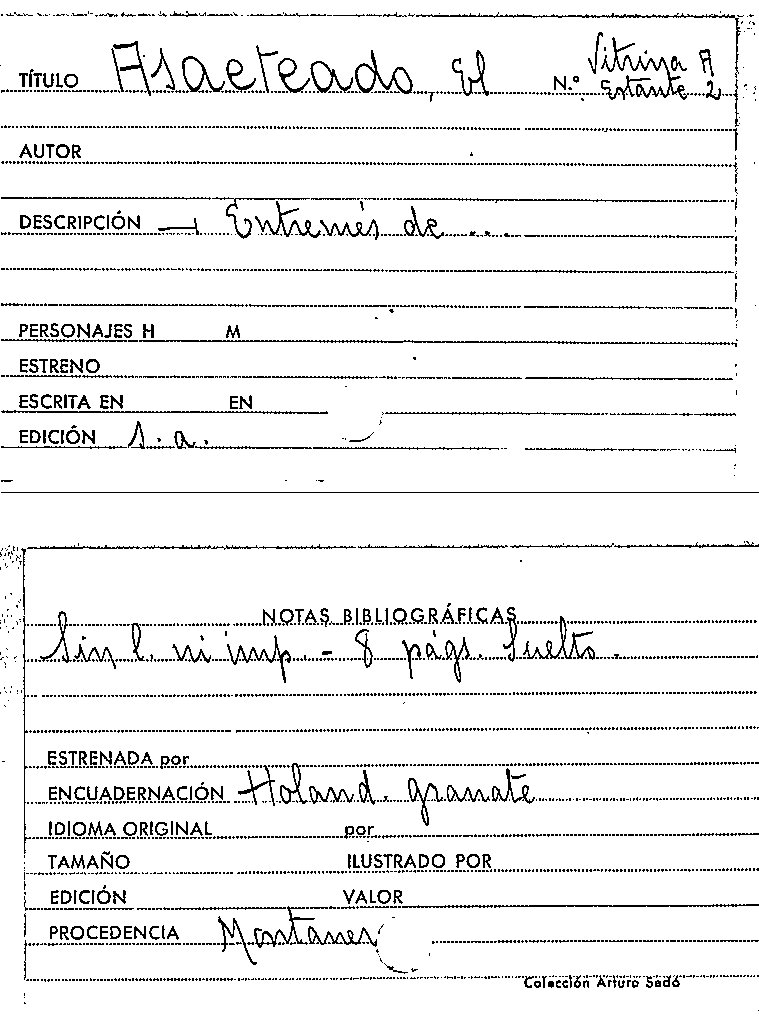 TÍTULO Asaeteado, El N.º Vitrina A
Estante 2
AUTOR
DESCRIPCIÓN — Entremés de ...
PERSONAJES H M
ESTRENO
ESCRITA EN EN
EDICIÓN s. a.
NOTAS BIBLIOGRÁFICAS
Sin l. ni imp. - 8 págs. Suelto.
ESTRENADA por
ENCUADERNACIÓN Holand. granate
IDIOMA ORIGINAL por
TAMAÑO ILUSTRADO POR
EDICIÓN VALOR
PROCEDENCIA Montaner
Colección Arturo Sedó